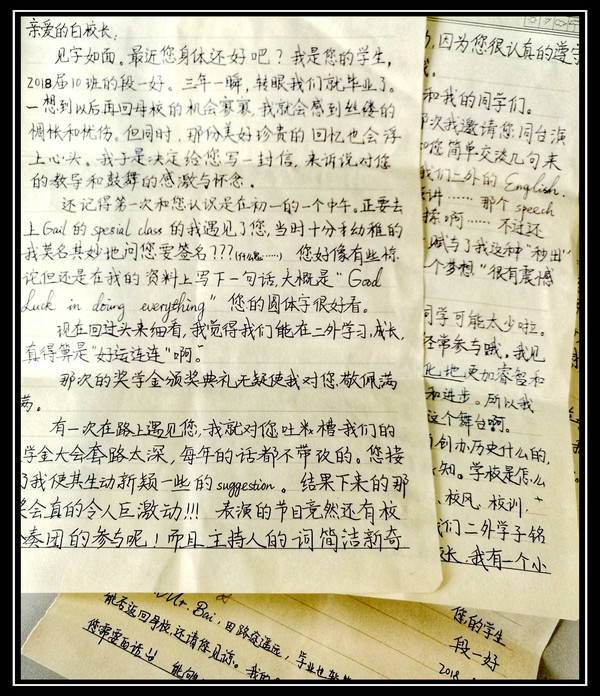 亲爱的白校长：
见字如面。最近您身体还好吧？我是您的学生，
2018届10班的段一好。三年一瞬，转眼我们就毕业了。
一想到以后再回母校的机会寥寥，我就会感到丝缕的
惆怅和忧伤。但同时，那份美好珍贵的回忆也会浮
上心头。我于是决定给您写一封信，来诉说对您
的教导和鼓舞的感激与怀念。
还记得第一次和您认识是在初一的一个中午。正要去
上Gail的spesial class的我遇见了您，当时十分幼稚的
我莫名其妙地问您要签名???
您好像有些惊
讶但还是在我的资料上写下一句话，大概是“Good
Luck in doing everything”您的圆体字很好看。
现在回过头来细看，我觉得我们能在二外学习、成长，
真得算是“好运连连”啊。
那次的奖学金颁奖典礼无疑使我对您敬佩满
满。
有一次在路上遇见您，我就对您吐槽我们的
学金大会套路太深，每年的话都不带改的。您接
了我使其生动新颖一些的suggestion。结果下来的那
奖会真的令人巨激动!!! 表演的节目竟然还有校
奏团的参与呢！而且主持人的词简洁新奇
，因为您很认真的遵守
和我的同学们。
那次我邀请您同台演
您简单交谈几句来
我们二外的English.
讲…… 那个speech
啊…… 不过还
赋与了我这种“秒出”
一个梦想“很有震憾
同学可能太少啦。
经常参与哦。我见
地更加睿智和
和进步。所以我
这个舞台啊。
创办历史什么的，
知。学校是怎么
、校风、校训，
我们二外学子铭
校长，我有一个小
Mr. Bai，因路途遥远，
能否返回母校，还请您见谅。我的
您需要面谈!!
您的学生
段一好
2018.